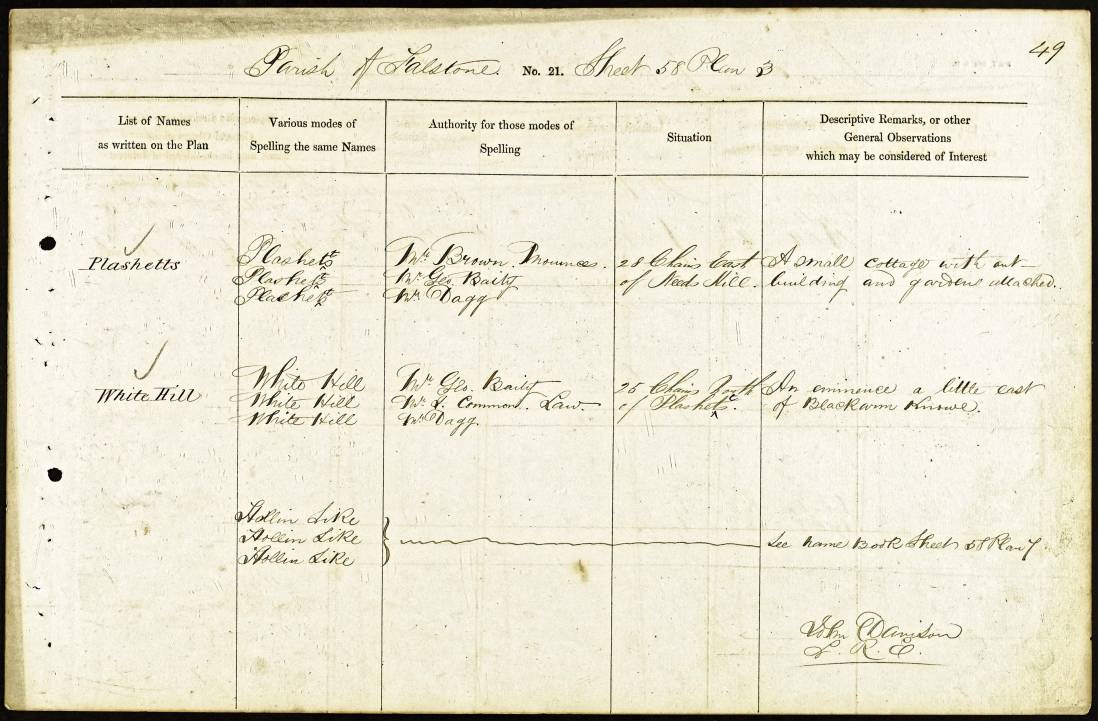 49
Parish of Falstone No. 21. Sheet 58 Plan 3
List of Names
as written on the Plan
Various modes of
Spelling the same Names
Authority for those modes of
Spelling
Situation
Descriptive Remarks, or other
General Observations
which may be considered of Interest
Plashetts
Plashetts
Plashetts
Plashetts
Mr. Brown. Mounces.
Mr. Geo. Baity
Mr. Dagg
28 Chains East
of Needs Hill.
A small cottage with out
building and gardens attached.
White Hill
White Hill
White Hill
White Hill
Mr. Geo. Baity
Mr. Common. Law.
Mr. Dagg.
25 Chains South
of Plashetts.
An eminence a little east
of Blackarm Knowe.
Hollin Sike
Hollin Sike
Hollin Sike
See Name Book Sheet 58 Plan 7
John Davison
L. R. E.